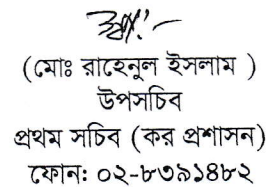 (মোঃ রাহেনুল ইসলাম )
উপসচিব
প্রথম সচিব (কর প্রশাসন)
ফোন: ০২-৮৩৯১৪৮২